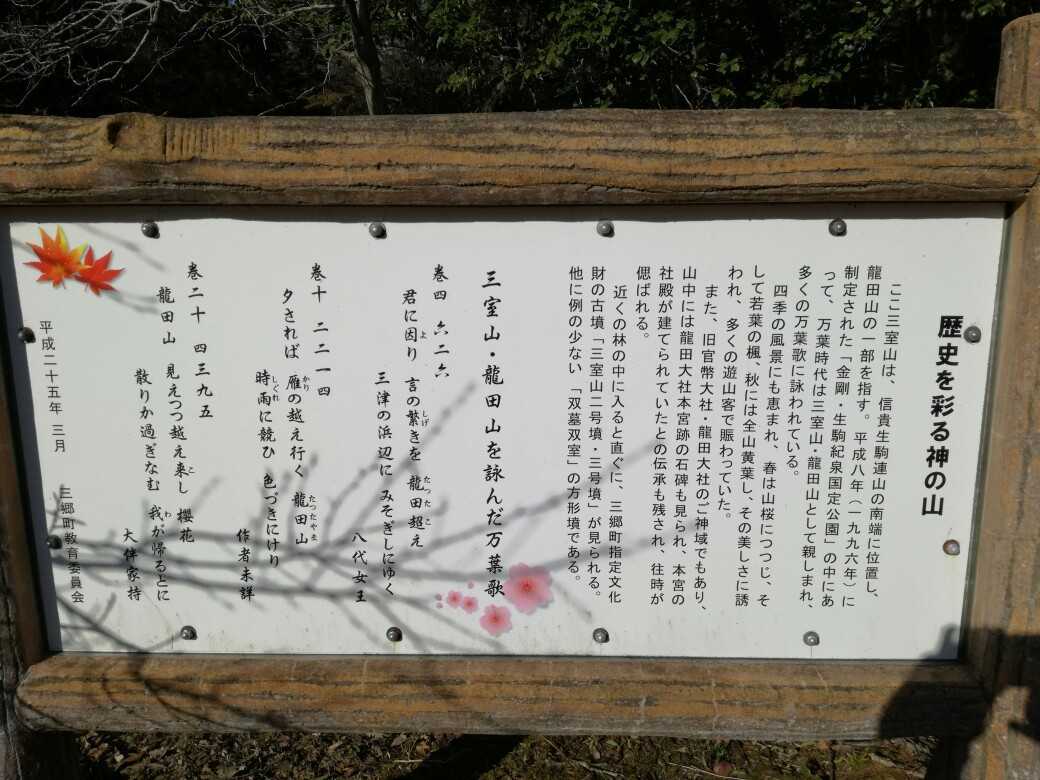 歴史を彩る神の山
ここ三室山は、信貴生駒連山の南端に位置し、
龍田山の一部を指す。平成八年（一九九六年）に
制定された「金剛・生駒紀泉国定公園」の中にあ
って、万葉時代は三室山・龍田山として親しまれ、
多くの万葉歌に詠われている。
四季の風景にも恵まれ、春は山桜につつじ、そ
して若葉の楓、秋には全山黄葉し、その美しさに誘
われ、多くの遊山客で賑わっていた。
また、旧官幣大社・龍田大社のご神域でもあり、
山中には龍田大社本宮跡の石碑も見られ、本宮の
社殿が建てられていたとの伝承も残され、往時が
偲ばれる。
近くの林の中に入ると直ぐに、三郷町指定文化
財の古墳「三室山二号墳・三号墳」が見られる。
他に例の少ない「双墓双室」の方形墳である。
三室山・龍田山を詠んだ万葉歌
巻四 六二六
君に因り 言の繁きを 龍田超え
よ しげ たつた こ
三津の浜辺に みそぎしにゆく
八代女王
巻十 二二一四
夕されば 雁の越え行く 龍田山
かり たつたやま
時雨に競ひ 色づきにけり
しぐれ
作者未詳
巻二十 四三九五
龍田山 見えつつ越え来し 櫻花
こ
散りか過ぎなむ 我が帰るとに
わ
大伴家持
平成二十五年 三月
三郷町教育委員会